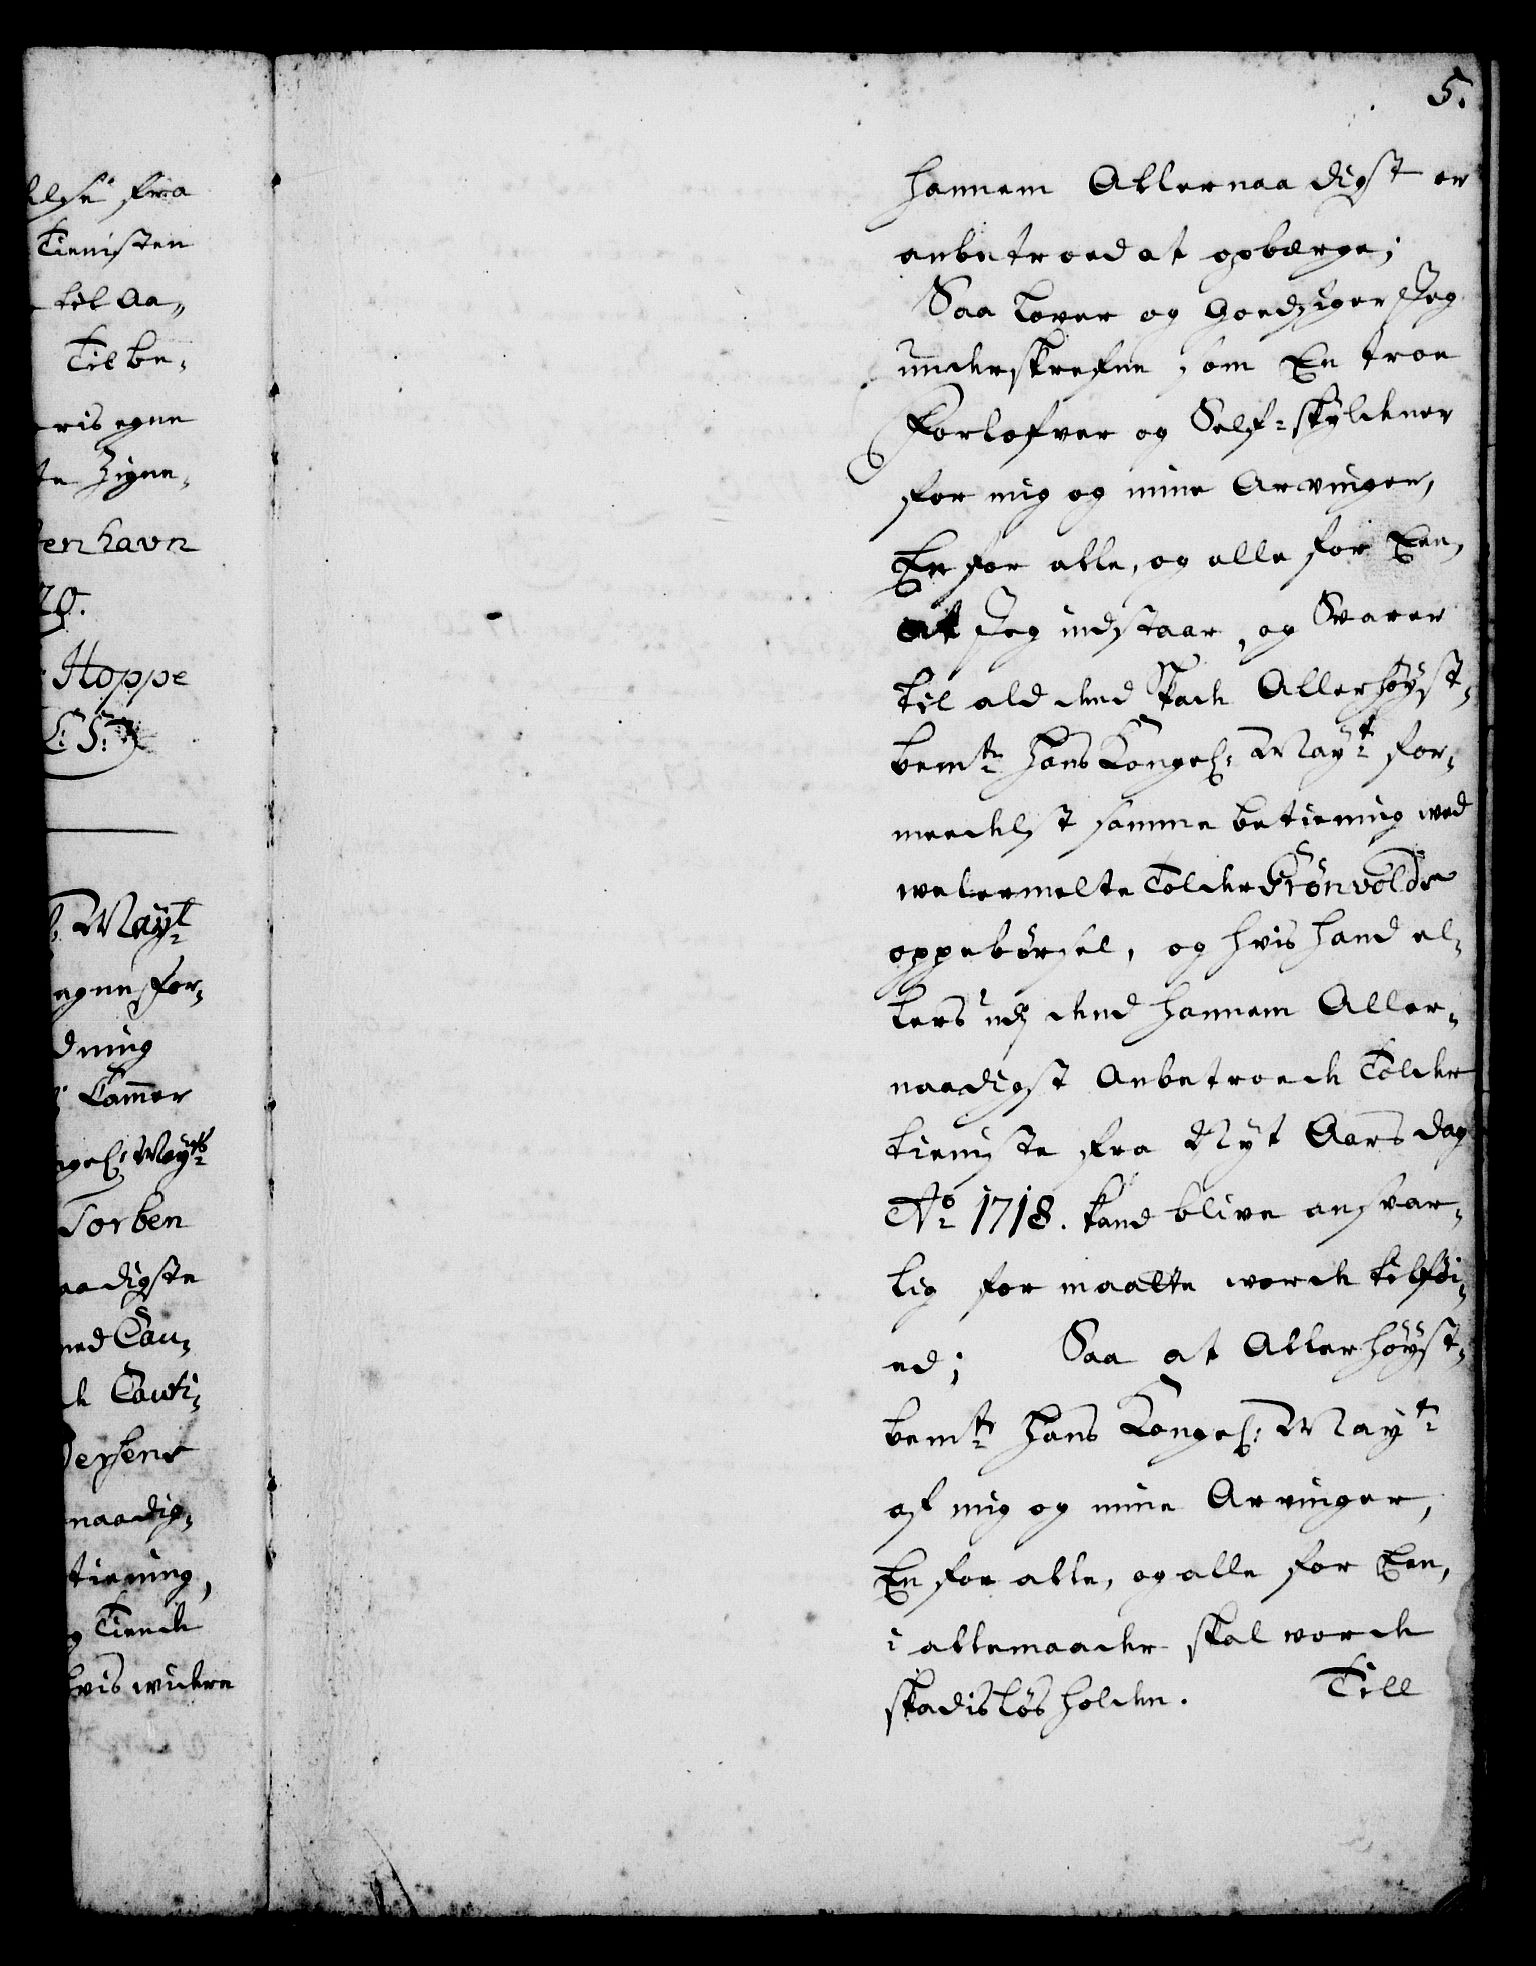 lse fra
Tienisten
til Aa„
Til be„
ris egne
te Zigne„
fenhavn
20.
Hoppe
L:S:
Mayt
egne for„
dning
Cammer
ngel: Mayts
Torben
aadigste
med Cau„
h Cauti„
naadig„
tiening,
g Tiende
hvis widere
5.
hannem Allernaadigst er
anbetroed at opbærge;
Saa Lover og Goedsiger Jeg
underskrefne som En troe
Forlofver og Self-skyldener
for mig og mine Arvinger,
En for alle, og alle for Een,
at Jeg indstaar, og Svarer
til ald dend Skade Allerhøyst„
bemte Hans Kongel: Mayt for„
meedelst samme betiening ved
welermelte Tolder Grönvolds
oppebørsel, og hvis hand el„
lers udj dend hannem Aller„
naadigst Anbetroede Tolder
tieniste fra Nyt Aars dag
Ao 1718. kand blive ansvar„
lig for maatte worde tilføi„
ed; Saa at Allerhøyst„
bemte Hans Kongel: Mayt
af mig og mine Arvinger,
En for alle, og alle for Een,
i allemaader skal worde
skadisløs holden. Till